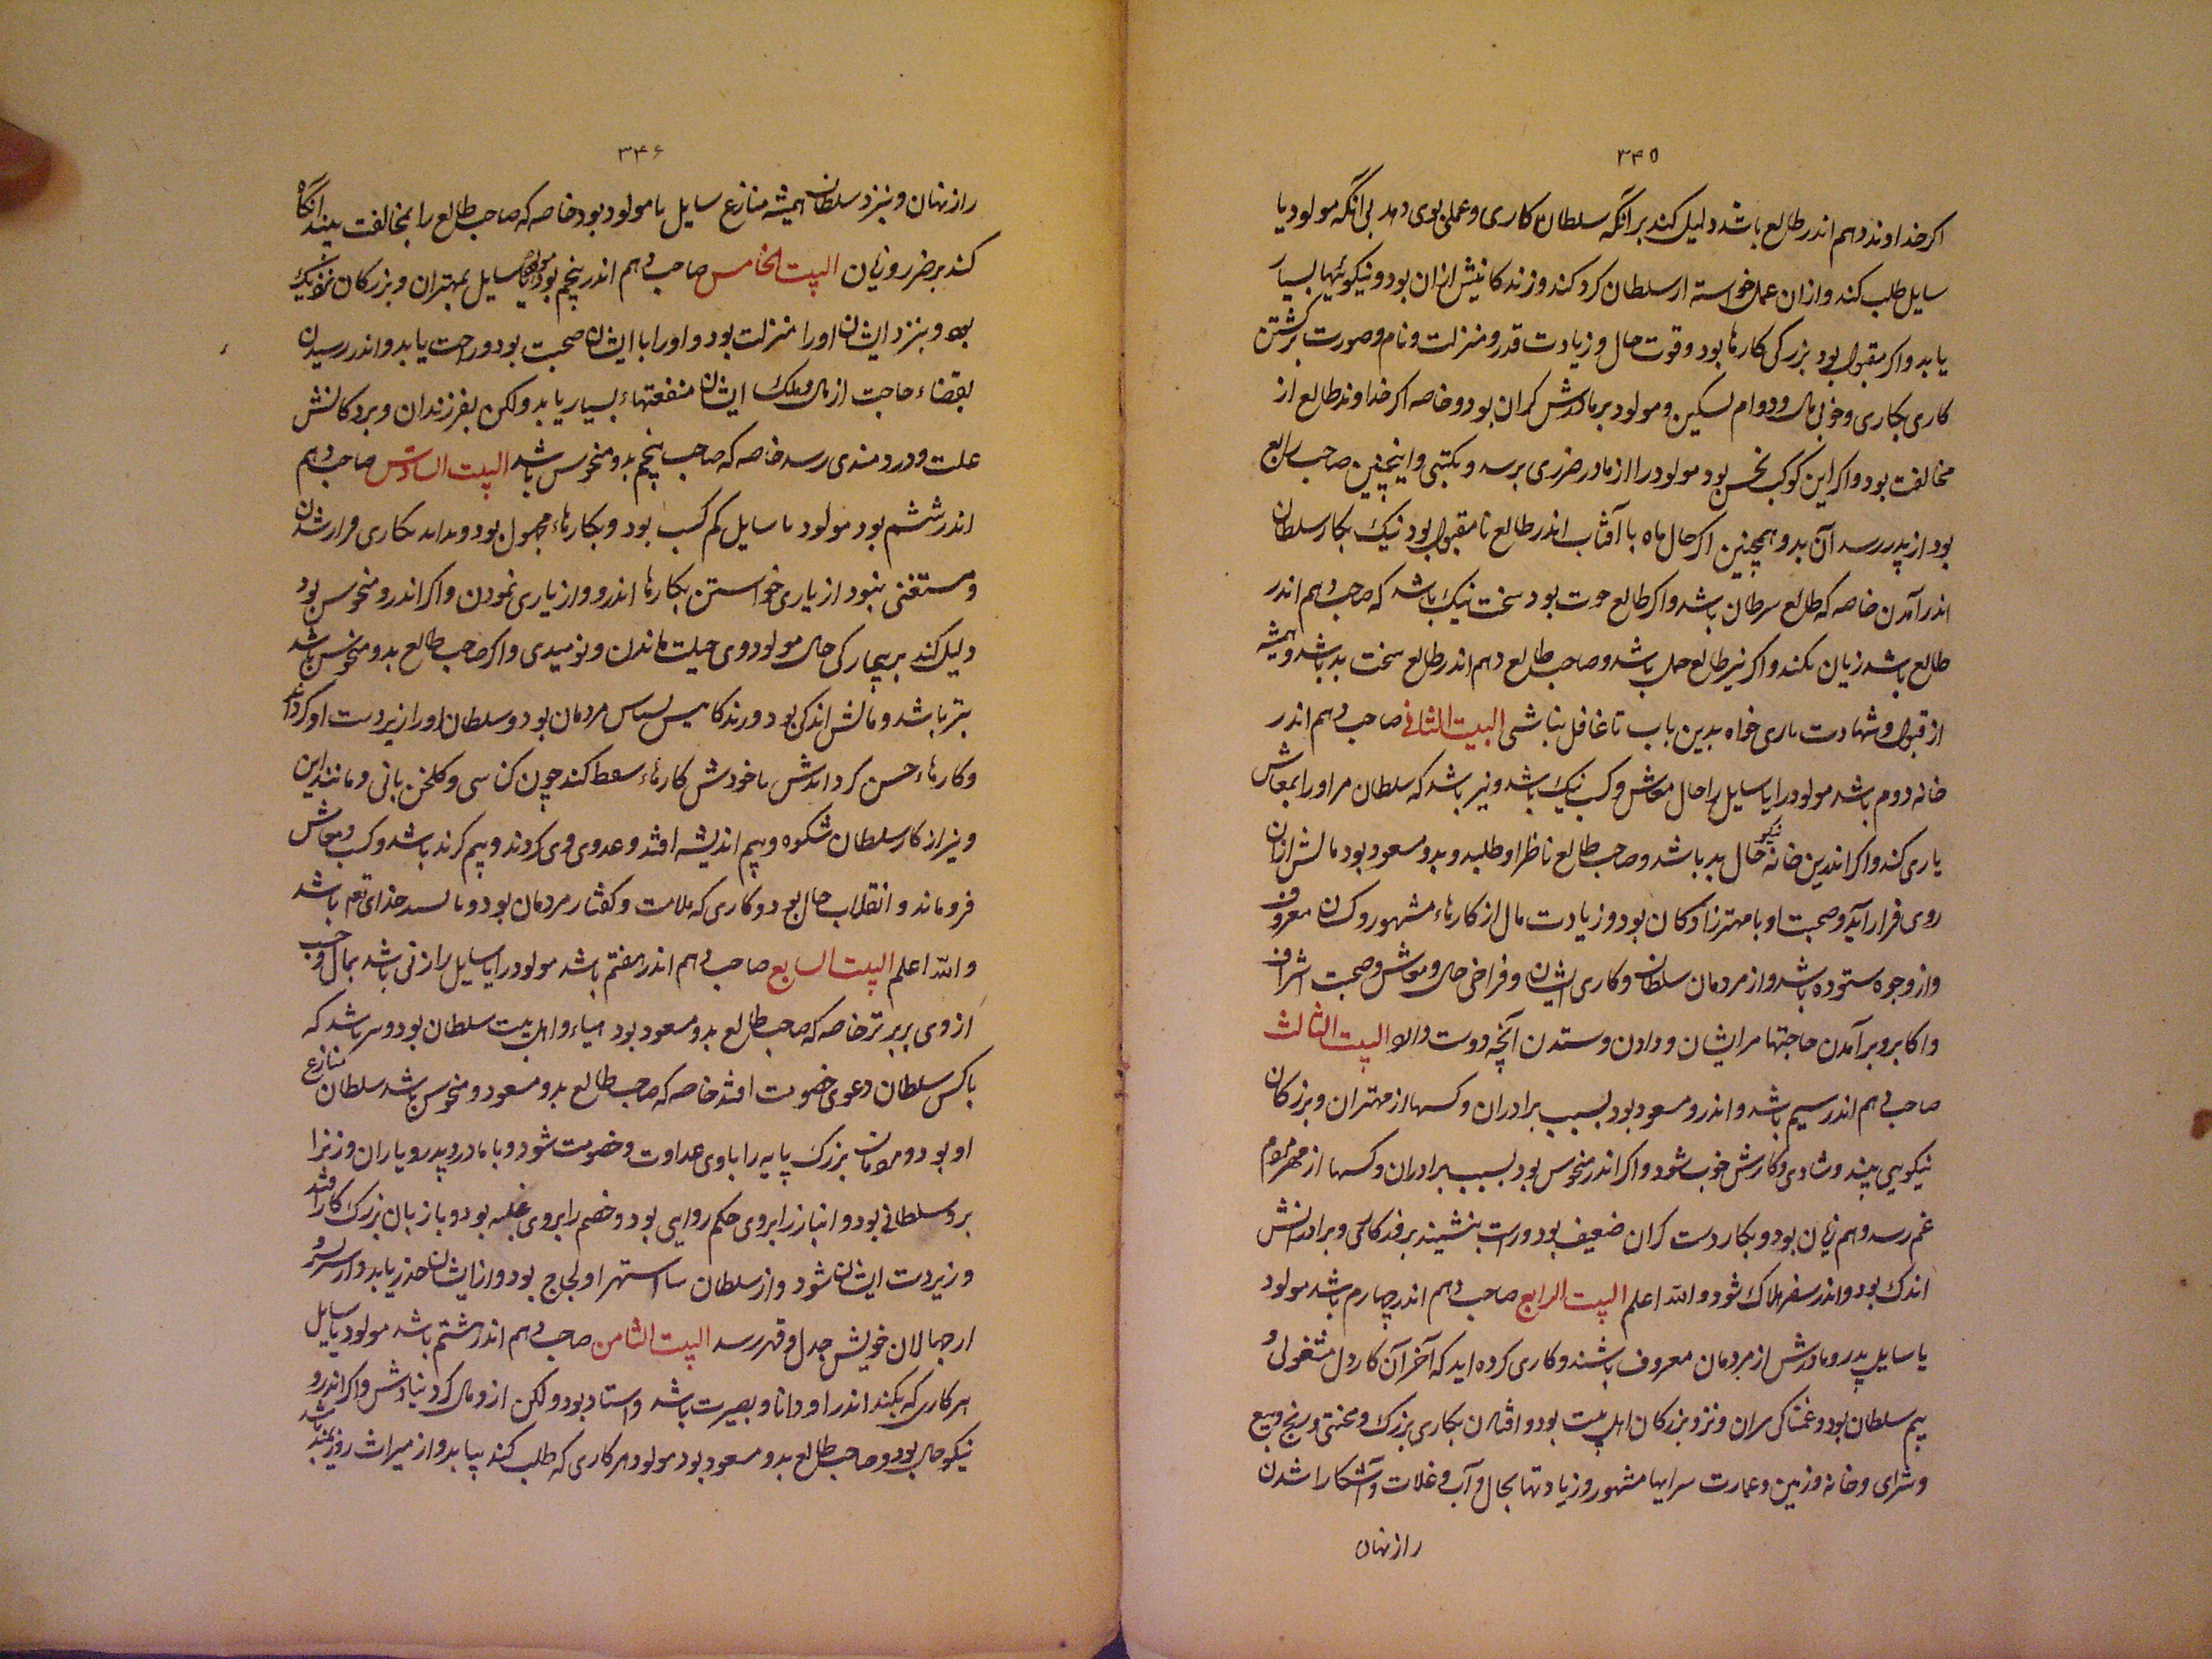 ۳۴۵
اکر خداوند دهم اندر طالع باشد دلیل کند برانکه سلطان کاری و عملی بوی دهد بی انکه مولود یا
سایل طلب کند و ازان عمل خواسته از سلطان کرد کند و زندکانیش ازان بود و نیکوئیها بسیار
یابد و اکر مقبول بود بزرکی کارها بود و قوت حال و زیادت قدر و منزلت و نام و صورت برکشتن
کاری بکاری و خوبی مال و دوام تسکین و مولود بر مادرش کران بود و خاصه اکر خداوند طالع از
مخالفت بود و اکر این کوکب نحس بود مولود را از مادر ضرری برسد و نکبتی و اینچنین صاحب رابع
بود از پدر رسد آن بد و همچنین اکر حال ماه با آفتاب اندر طالع نامقبول بود نیک بکار سلطان
اندر آمدن خاصه که طالع سرطان باشد و اکر طالع حوت بود سخت نیک باشد که صاحب دهم اندر
طالع باشد زیان نکند و اکر نیز طالع حمل باشد و صاحب طالع دهم اندر طالع سخت بد باشد و همیشه
از قبول و شهادت یاری خواه بدین باب تا غافل نباشی البیت الثانی صاحب دهم اندر
خانه دوم باشد مولود را یا سایل را حال معاش و کسب نیک باشد و نیز باشد که سلطان مر او را بمعاش
یاری کند و اکر اندرین خانه نیکو حال بد باشد و صاحب طالع ناظر او طلبد و بدو مسعود بود مالش ازان
روی فراز آید و صحبت او با مهترزادکان بود و زیادت مال از کارهاء مشهور و کسان معروف
و از وجوه ستوده باشد و از مردمان سلطان و کاری ایشان و فراخی حال و معاش و صحبت اشراف
و اکابر و برآمدن حاجتها مر ایشان و دادن و ستدن آنچه دوست دارد البیت الثالث
صاحب دهم اندر سیم باشد و اندرو مسعود بود بسبب برادران و کسها از مهتران و بزرکان
نیکویی بیند و شادی و کارش خوب شود و اکر اندر منحوس بود بسبب برادران و کسها از مهر
غم رسد و هم زیان بود و بکار دست کران ضعیف بود و راست بنشیند بر و برادرانش
اندک بود و اندر سفر هلاک شود و الله اعلم البیت الرابع صاحب دهم اندر چهارم باشد مولود
یا سایل پدر و مادرش از مردمان معروف باشند و کاری کرده اید که آخر آن کار دل مشغولی و
بیم سلطان بود و غمناکی سران و نزد بزرکان اهل بیت بود و افتادن بکاری بزرک و محنتی و رنج و بیع
و شرای و خانه و زمین و عمارت سرایها مشهور و زیادتها بحال و آب و غلات و آشکارا شدن
راز نهان
۳۴۶
راز نهان و بنزد سلطان همیشه منازع سایل یا مولود بود خاصه که صاحب طالع را بمخالفت بیند انکاه
کند بر ضرر و زیان البیت الخامس صاحب دهم اندر پنجم بود مولود یا سایل بمهتران و بزرکان نزدیک
بود و بنزد ایشان او را منزلت بود و او را با ایشان صحبت بود و راحت یابد و اندر رسیدن
بقضاء حاجت از مال ملک ایشان منفعتهاء بسیار یابد ولکن بفرزندان و بردکانش
علت و دردمندی رسد خاصه که صاحب پنجم بدو منحوس باشد البیت السادس صاحب دهم
اندر ششم بود مولود یا سایل کم کسب بود و بکارهاء مجهول بود و کاری فراز شدن
و مستغنی نبود از یاری خواستن بکارها اندر و از یاری نمودن و اکر اندرو منحوس بود
دلیل کند بر بیچارکی حال مولود وی حیلت ماندن و نومیدی و اکر صاحب طالع بدو منحوس باشد
بتر باشد و مالش اندکی بود و سپاس مردمان بود و سلطان او را زیر دست او
و کارهاء یا خودش کارهاء سقط کند چون کناسی و کلخن بانی و مانند این
و نیز از کار سلطان شکوه و بیم اندیشه افتد و عدوی وی کردند و بیم کرند باشد و کسب و معاش
فروماند و انقلاب حال بود و کاری که ملامت و کفتار مردمان بود و خذای تع باشد
و الله اعلم البیت السابع صاحب دهم اندر هفتم باشد مولود را یا سایل را زنی باشد بمال و حسب
از وی بر برتر خاصه که صاحب طالع بدو مسعود بود و اهل بیت سلطان بود و نیز باشد که
با کس سلطان دعوی خصومت افتد خاصه که صاحب طالع بدو مسعود و منحوس باشد سلطان منازع
او بود و مردمان بزرک پایه را با وی عداوت و خصومت شود و با مادر و پدر و یاران و زنرا
برو سلطانی بود و انباز را بروی حکم روایی بود و خصم را بروی غلبه بود و با زبان بزرک کار افتد
و زیردست ایشان شود و از سلطان لجاج بود و از ایشان حذر یابد و
از خویش جدل و قهر رسد البیت الثامن صاحب دهم اندر هشتم باشد مولود یا سایل
هر کاری که بکند اندر او دانا و بصیرت باشد و استاد بود ولکن از و مال کرد نیارش و اکر اندرو
نیکو حال بود و صاحب طالع بدو مسعود بود مولود هر کاری که طلب کند بیابد و از میراث روزیمند باشد